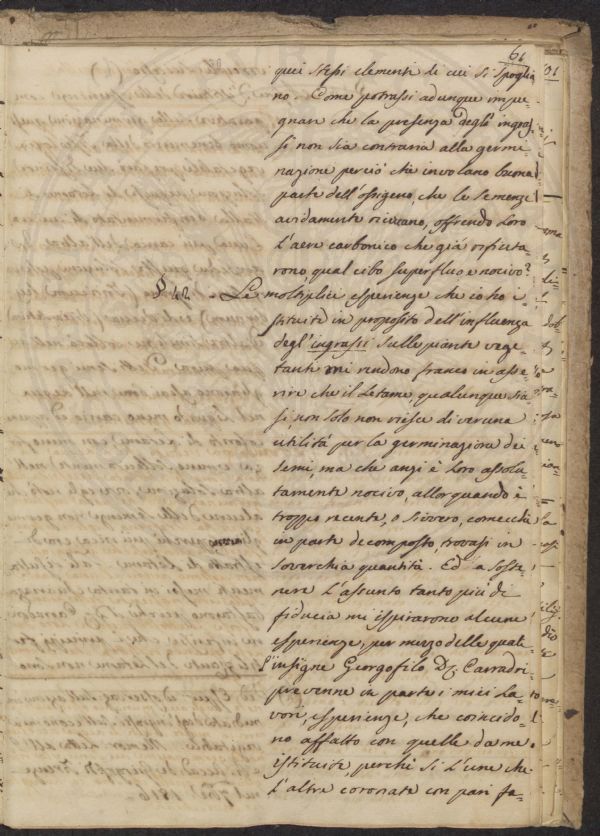 61
quei stessi elementi di cui si spoglia-
no. Come potrassi adunque impu-
gnare che la presenza degl' ingras-
si non sia contraria alla germi-
nazione perciò che involano buona
parte dell'ossigeno, che le semenze
avidamente ricercano, offrendo loro
l'aere carbonico che già rifiuta-
rono, qual cibo superfluo e nocivo?
§ 42. Le moltiplici esperienze che io ho i-
stituite in proposito dell'influenza
degl' ingrassi sulle piante vege-
tanti mi rendono franco in asse-
rire che il Letame, qualunque sia-
si, non solo non riesce di veruna
utilità per la germinazione dei
semi, ma che anzi è loro assolu-
tamente nocivo, allorquando è
troppo recente, o sivvero, comecchè
in parte decomposto, trovasi in
soverchia quantità. Ed a soste-
nere l'assunto tanto più di
fiducia mi ispirarono alcune
esperienze, per mezzo delle quali
l'insigne Georgofilo Dr. Carradri
prevenne in parte i miei la-
vori, esperienze, che coincido-
no affatto con quelle da me
istituite, perchè sì l'une che
l'altre coronate con pari fe-